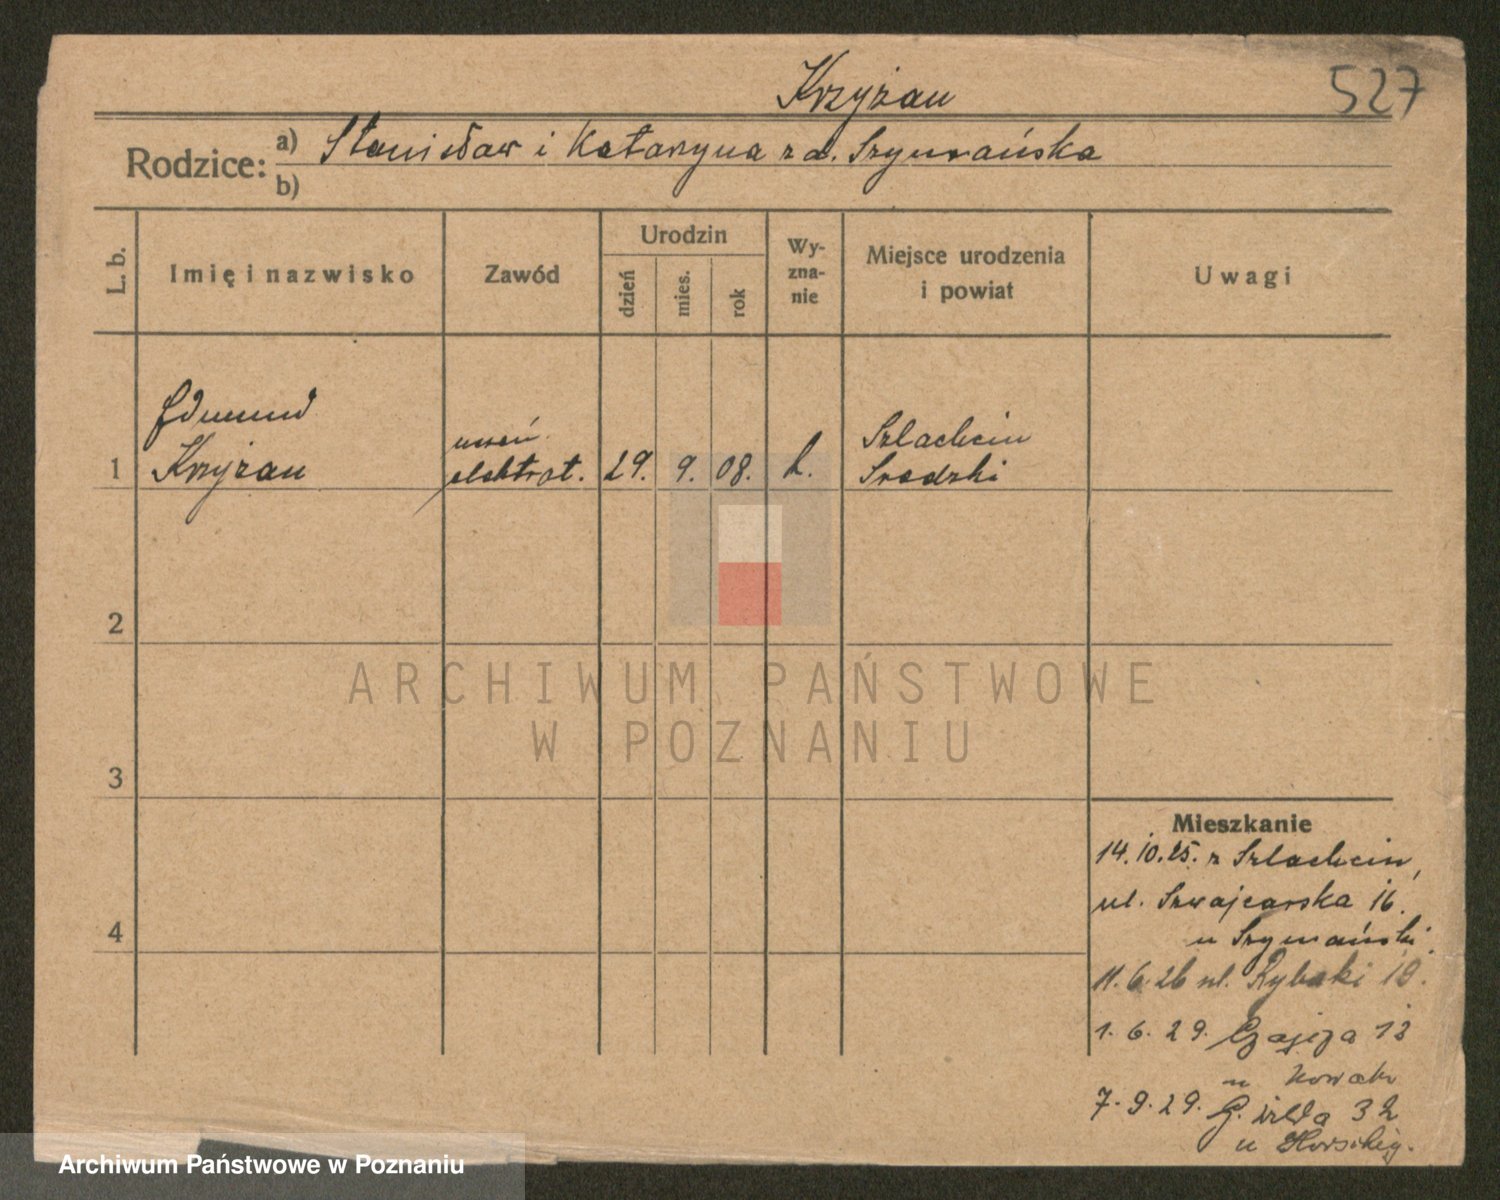 Krzyżan
527
Rodzice: a) Stanisław i Katarzyna z d. Szymańska
b)
L. b.
Imię i nazwisko
Zawód
Urodzin
dzień
mies.
rok
Wy-
zna-
nie
Miejsce urodzenia
i powiat
Uwagi
Edmund
uczeń
Szlachcin
1 Krzyżan elektrot. 29. 9. 08. k. Średzki
2
ARCHIWUM PAŃSTWOWE
W POZNANIU
3
Mieszkanie
14.10.25. z Szlachcin,
ul. Szwajcarska 16.
4
u Szymański.
11.6.26 ul. Rybaki 18.
1.6.29. Czajcza 12
u Nowak
7.9.29. G. Wilda 32
u
Archiwum Państwowe w Poznaniu